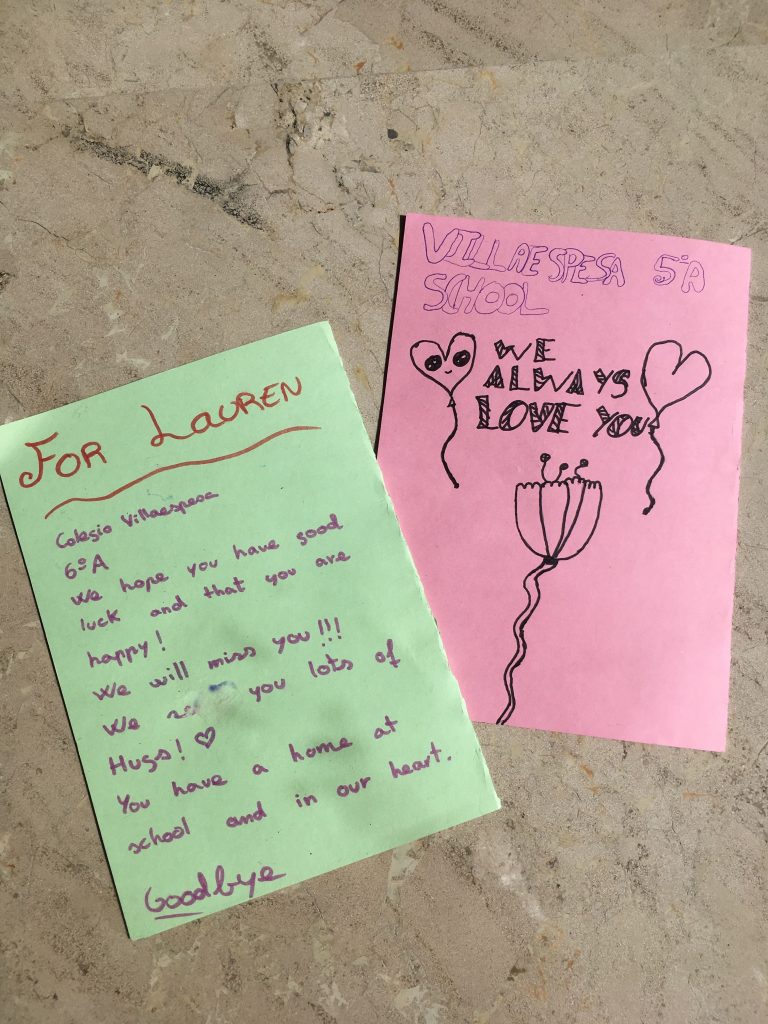 FOR LAUREN
Colegio Villaespesa
6ºA
We hope you have good
luck and that you are
happy!
We will miss you!!!
We you lots of
Hugs! ♡
You have a home at
school and in our heart.
Goodbye
VILLAESPESA 5ºA
SCHOOL
WE
ALWAYS
LOVE YOU